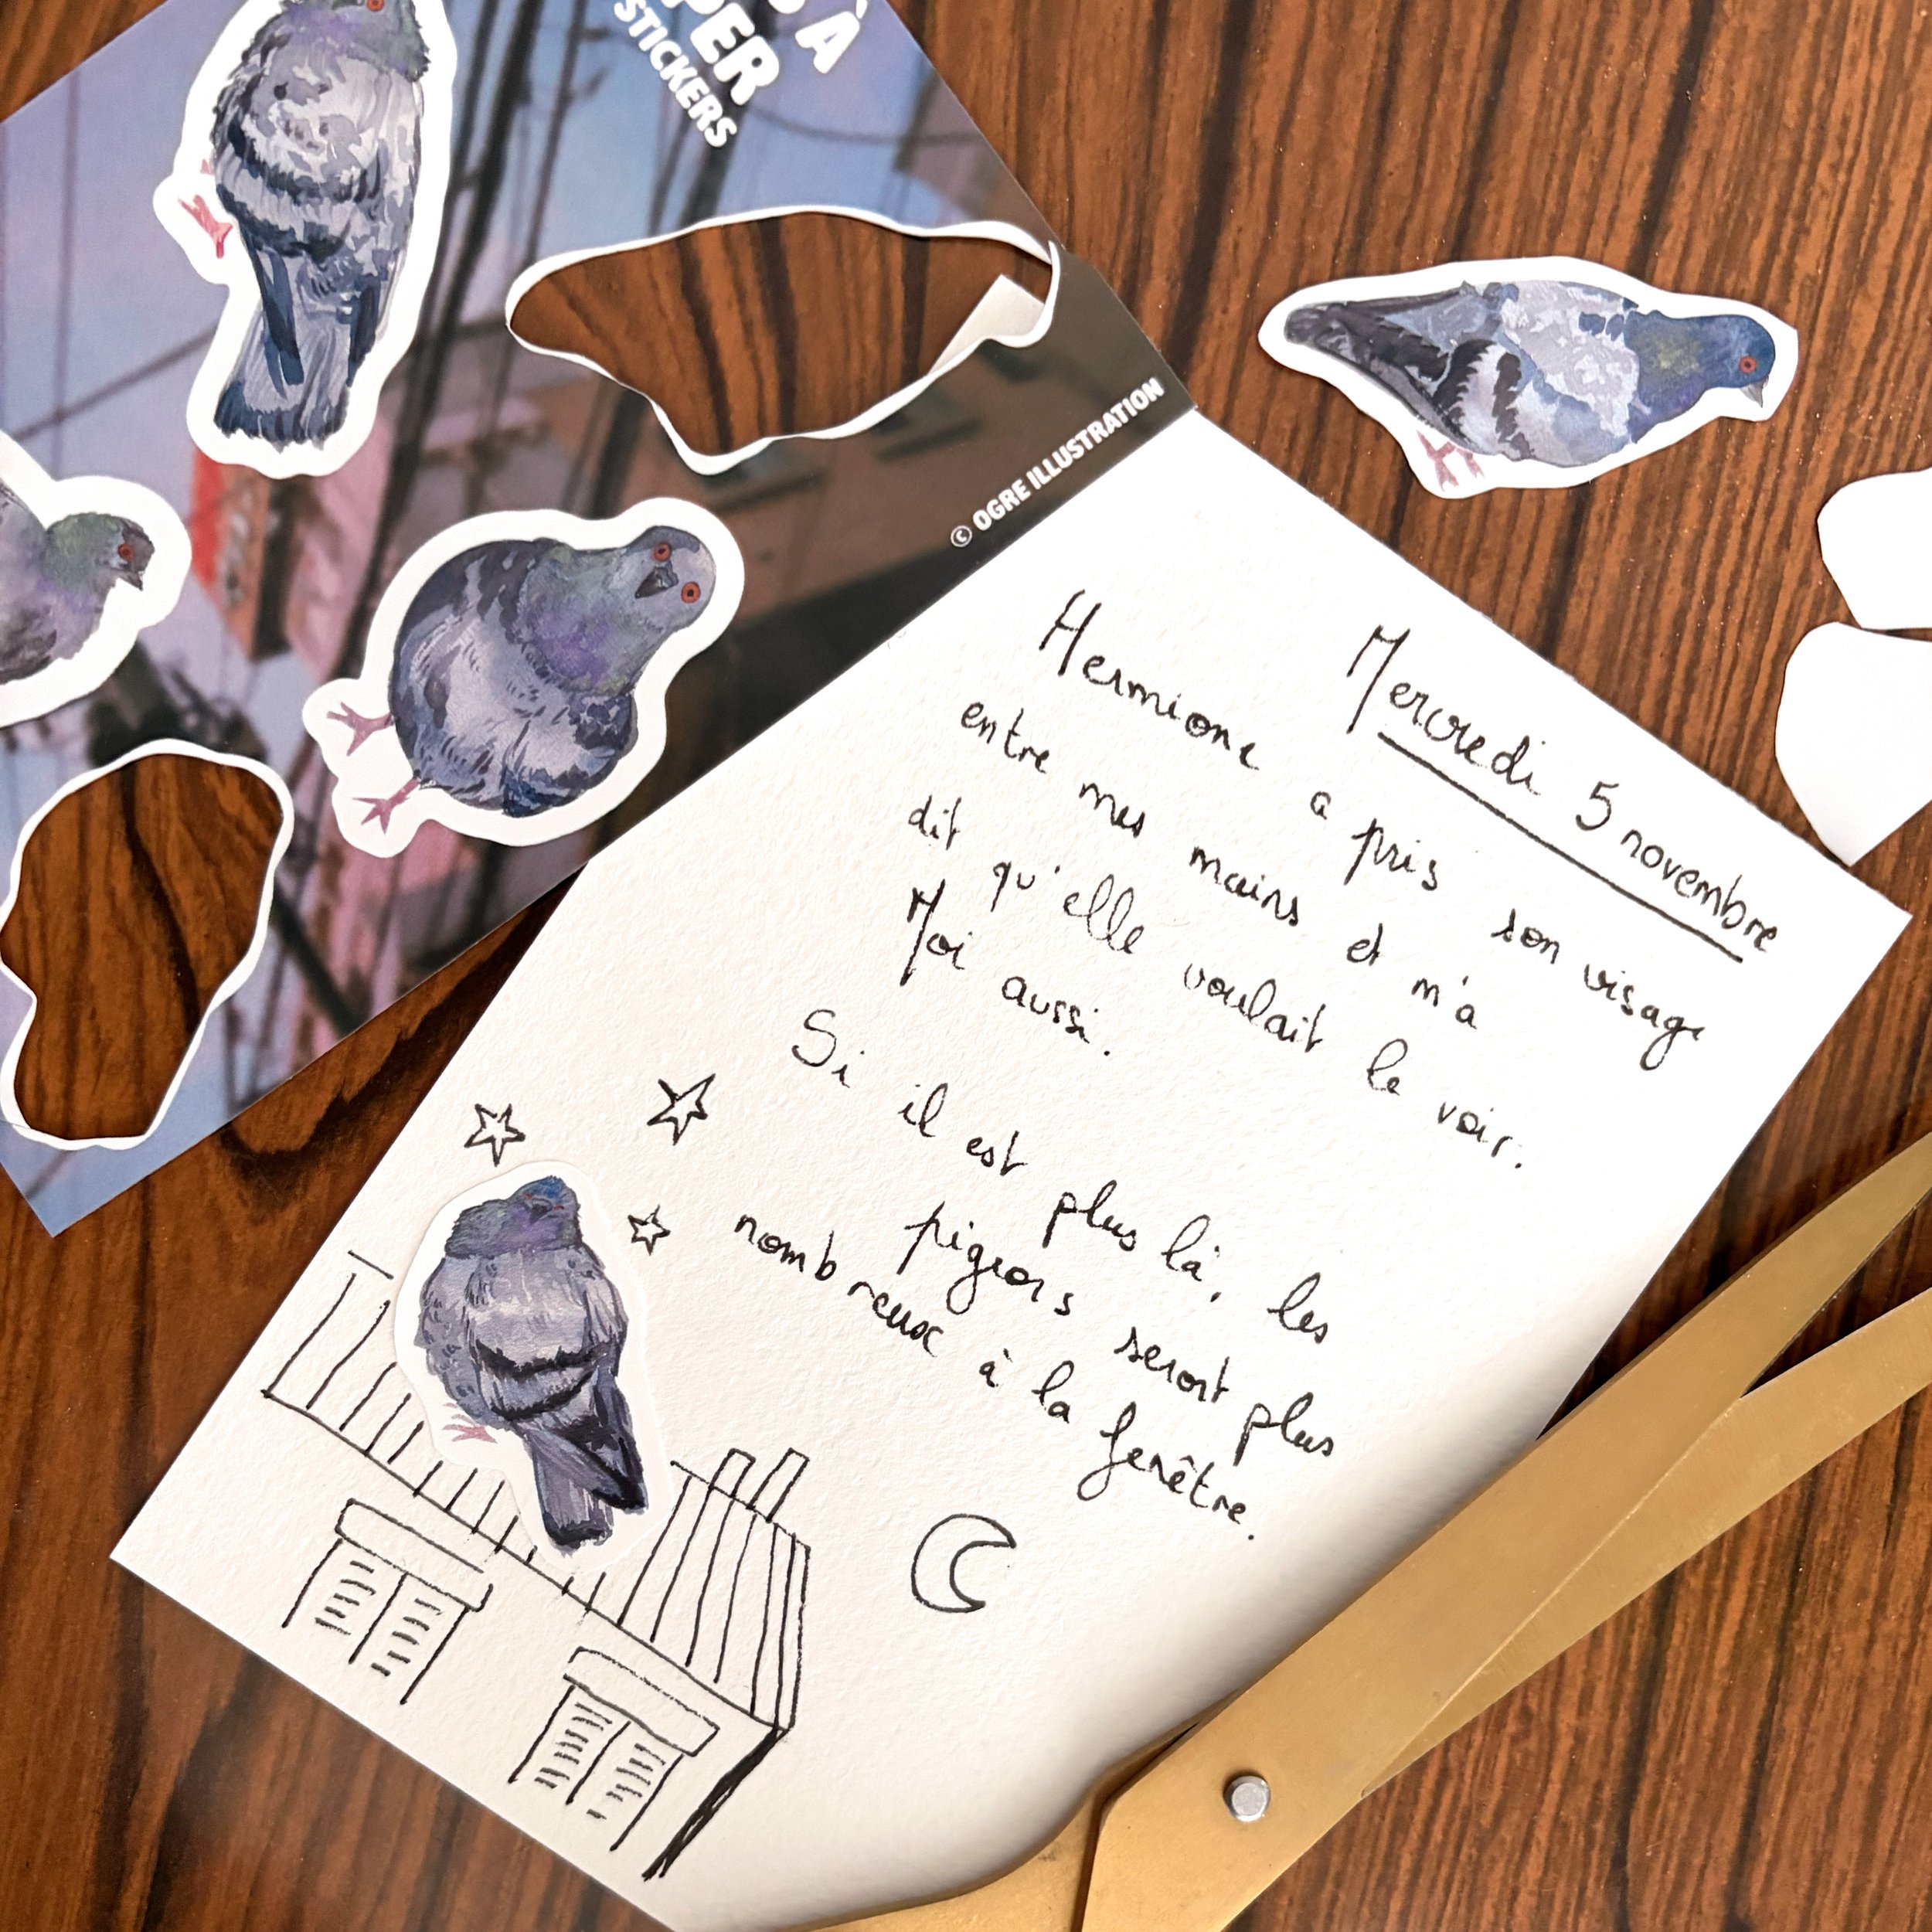 À
PER
STICKERS
© OGRE ILLUSTRATION
Mercredi 5 novembre
Hermione a pris son visage
entre mes mains et m'a
dit qu'elle voulait le voir.
Moi aussi.
Si il est plus là, les
pigeons seront plus
nombreux à la fenêtre.